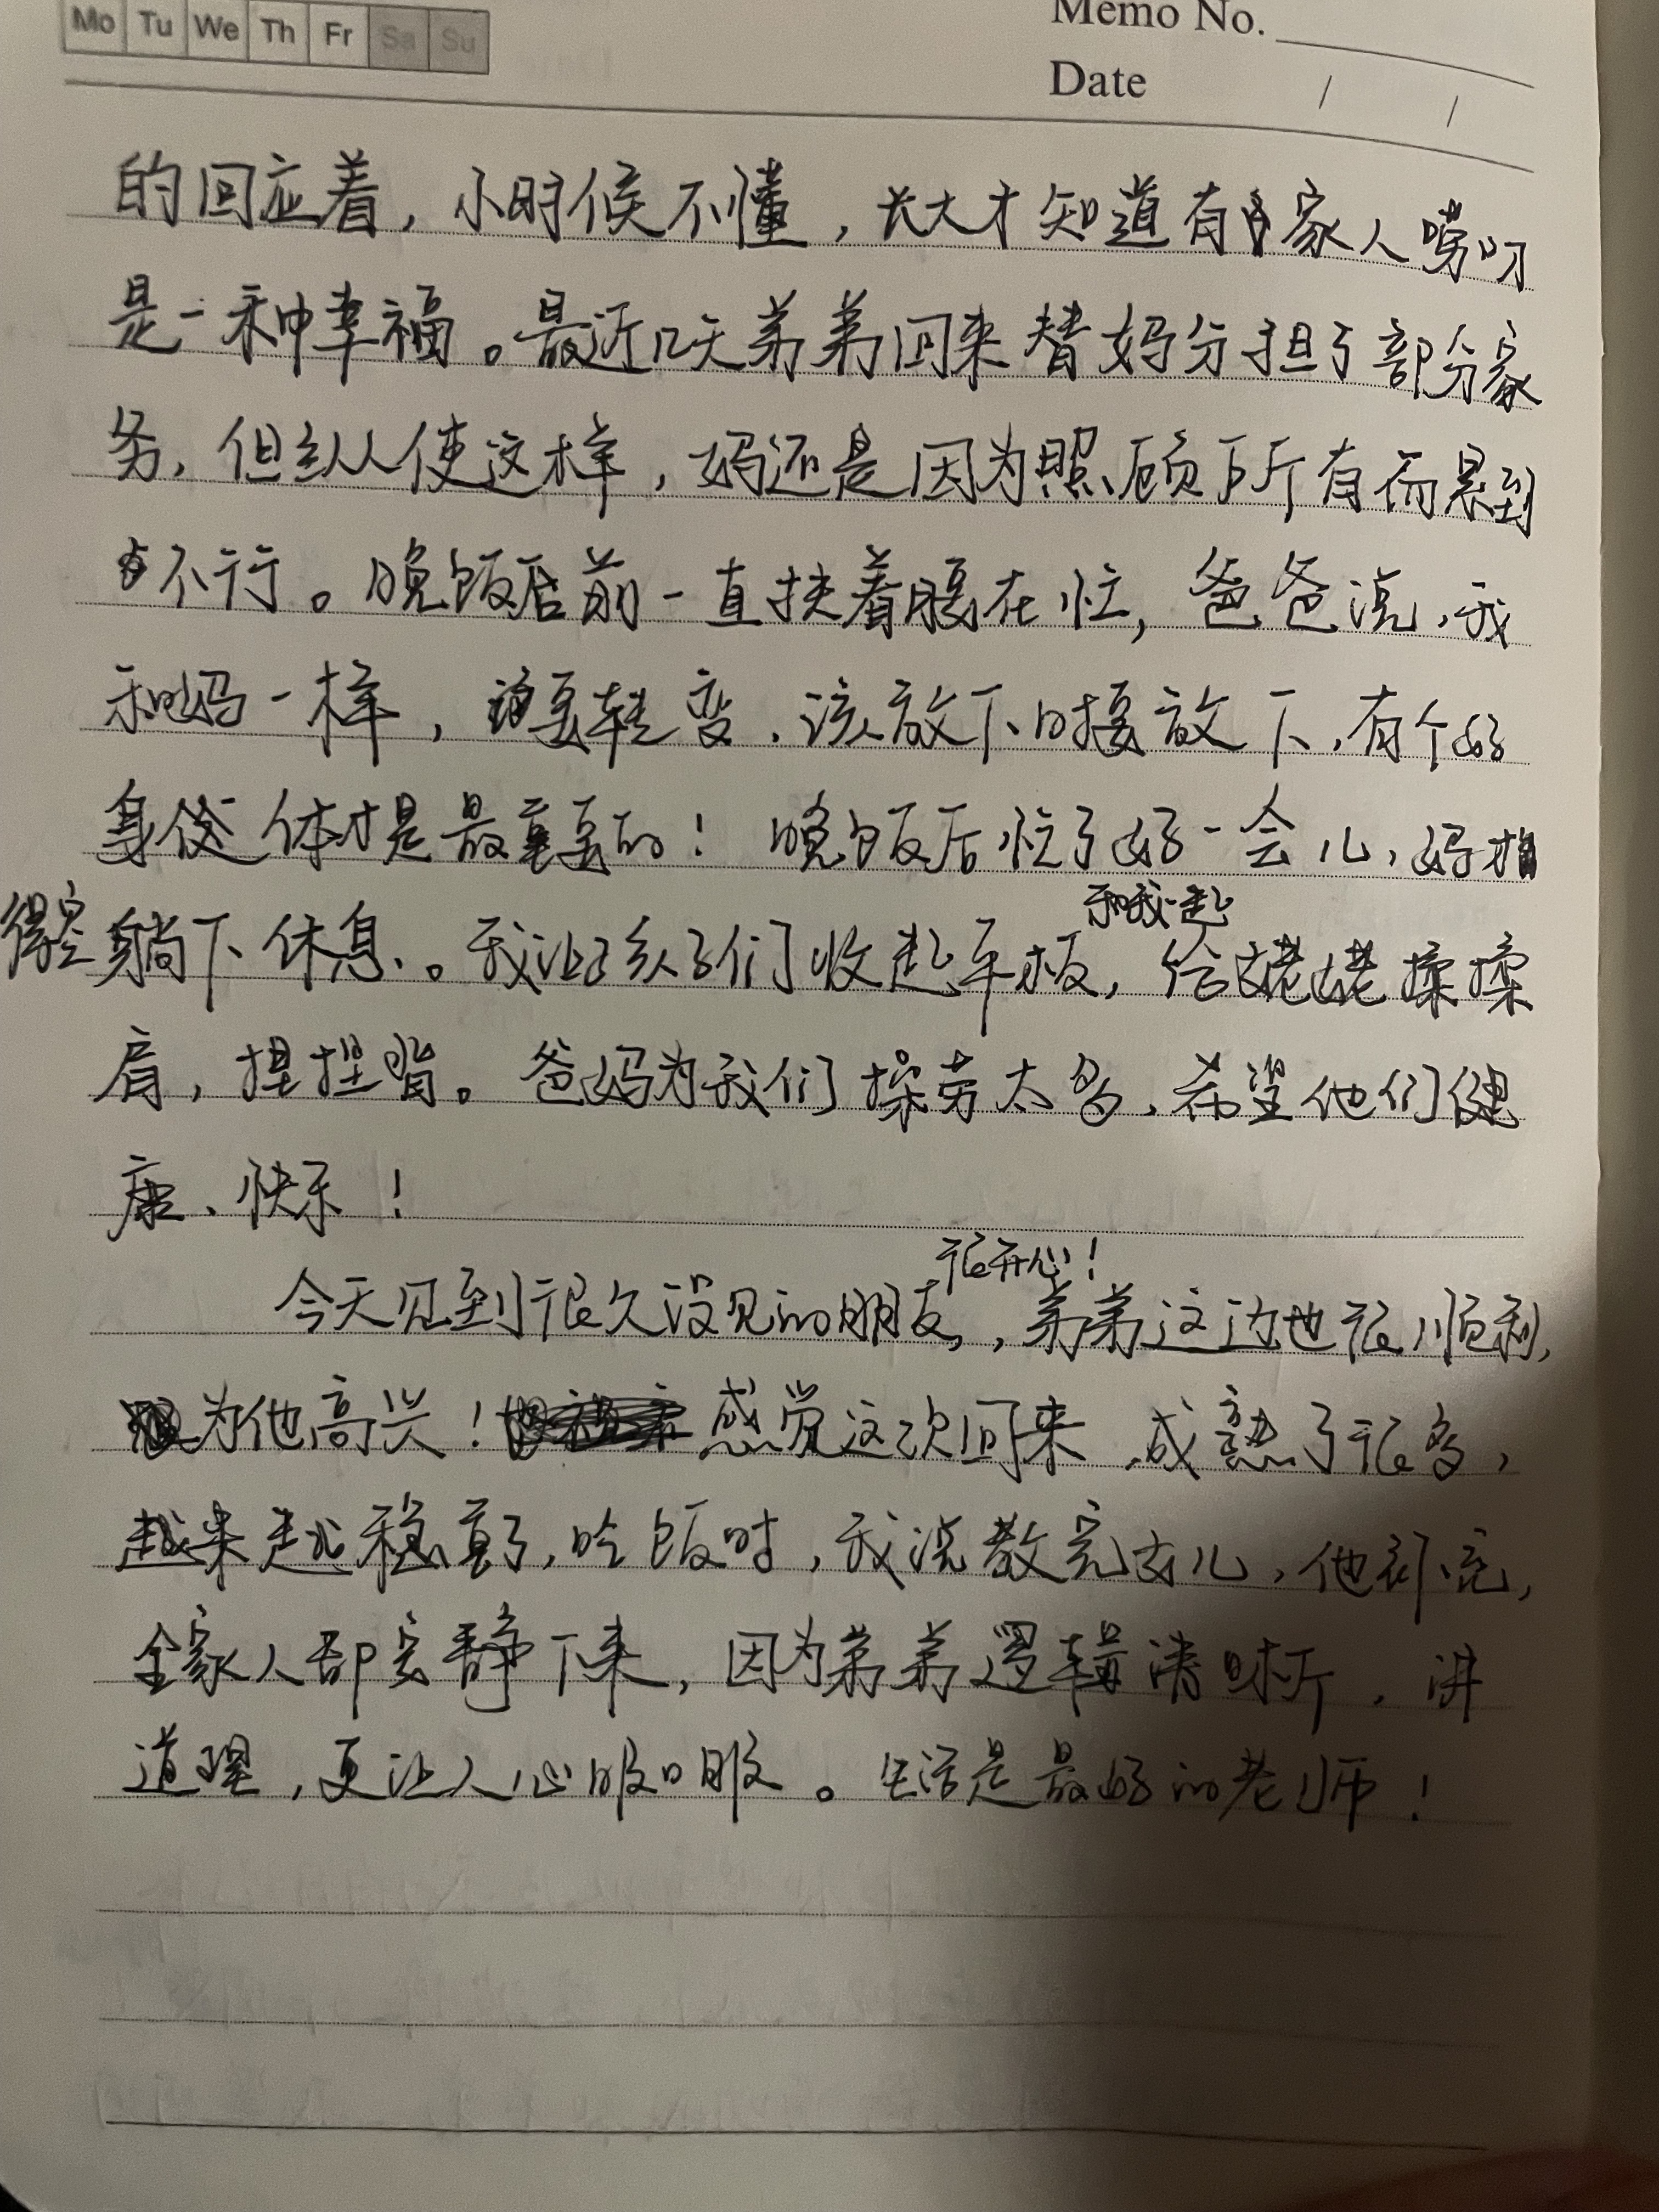 Mo Tu We Th Fr Sa Su
Memo No.
Date / /
的回应着，小时候不懂，长大才知道有家人唠叨
是一种幸福。最近几天弟弟回来替妈分担了部分家
务，但纵使这样，妈还是因为照顾所有而累到
不行。晚饭店前一直扶着腰在忙，爸爸说，我
和妈一样，要转变，该放下时接放下，有个好
身体才是最重要的！晚饭后忙了好一会儿，妈才
得空躺下休息。我让孩子们收起平板，和我一起给姥姥揉揉
肩，捏捏背。爸妈为我们操劳太多，希望他们健
康、快乐！
今天见到很久没见的朋友，很开心！弟弟这边也很顺利，
为他高兴！感觉这次回来，成熟了很多，
越来越稳重了，吃饭时，我说教完女儿，他补充，
全家人都安静下来，因为弟弟逻辑清晰，讲
道理，更让人心服口服。生活是最好的老师！